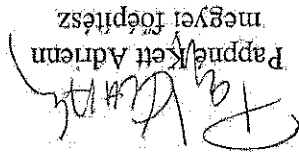 Pappné Kett Adrienn
megyei főépítész